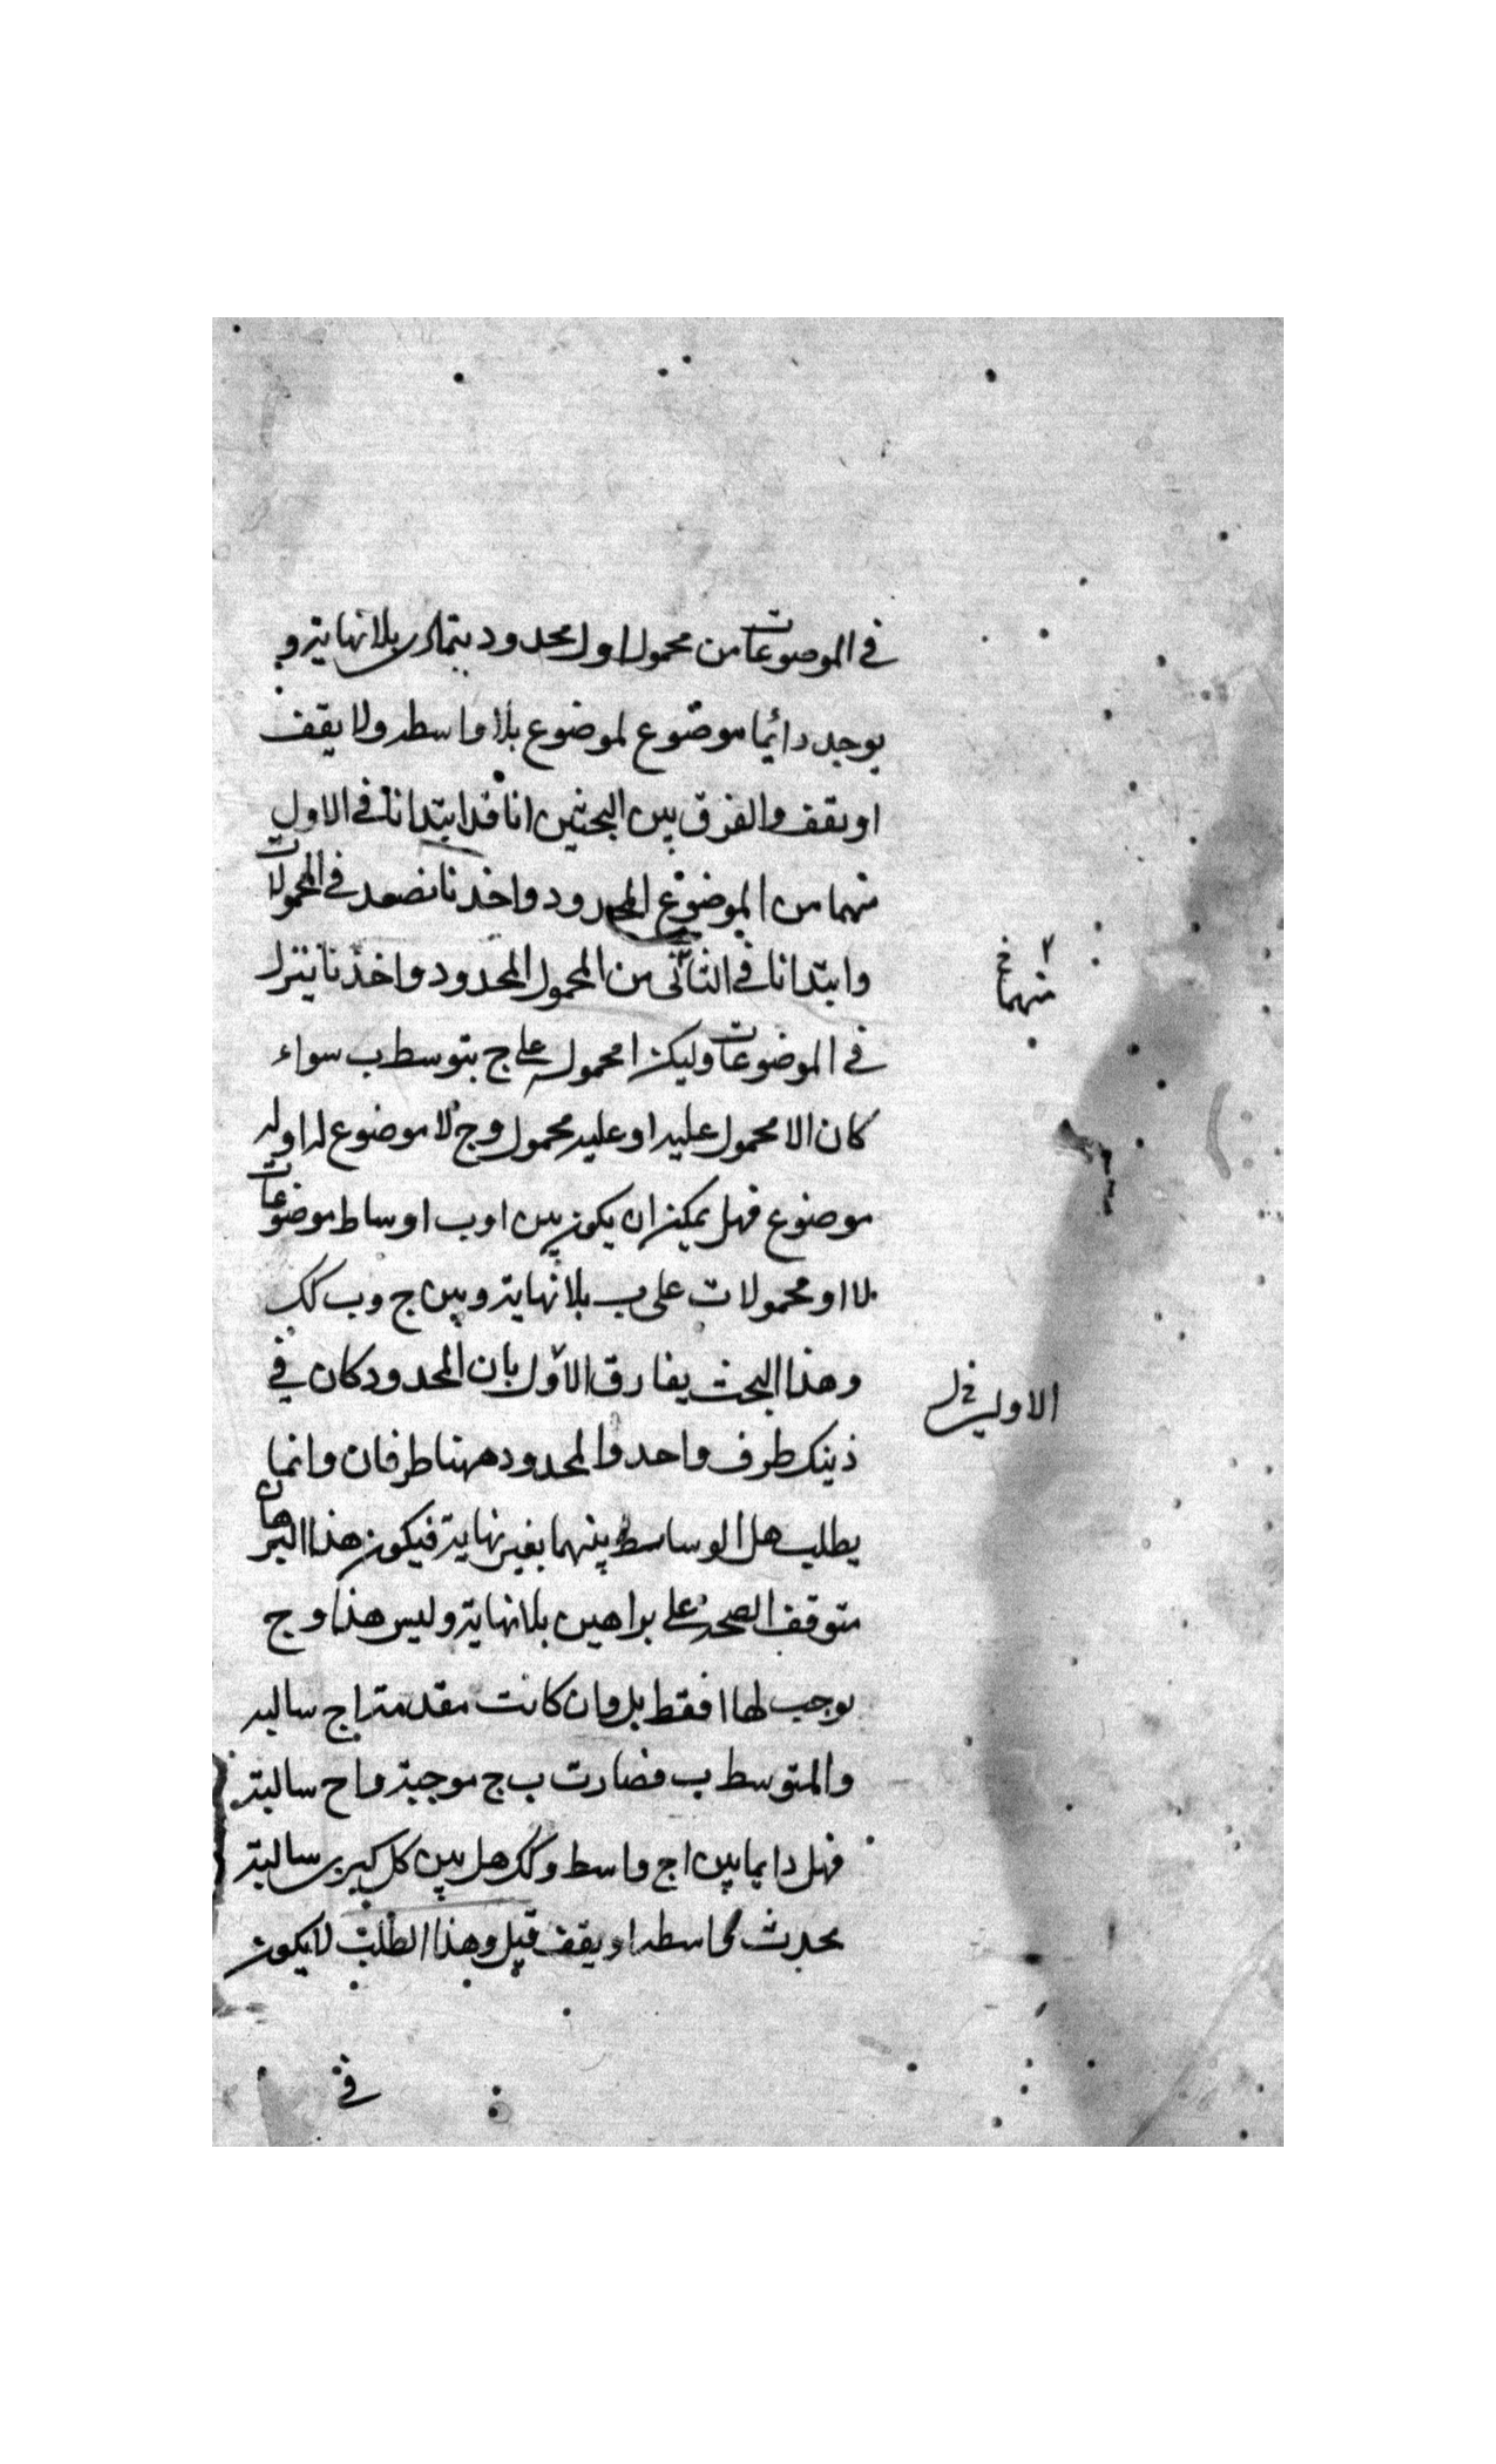 في الموضوعات من محمول اول محدود يتمادى بلا نهاية و
يوجد دائما موضوع لموضوع بلا واسطه ولا يقف
او يقف والفرق بين البحثين انا قد ابتدانا في الاول
منهما من الموضوع المحدود واخذنا نصعد في المحمولات
وابتدانا في الثاني من المحمول المحدود واخذنا ننزل
منهما خ
في الموضوعات وليكن ا محمول على ج بتوسط ب سواء
كان الا محمول عليه او عليه محمول وج لا موضوع له اوله
موضوع فهل يمكن ان يكون بين ا وب اوساط موضوعات
لا او محمولات على ب بلا نهاية وبين ج وب كك
وهذا البحث يفارق الأول بان المحدود كان في
الاولين خ ل
ذينك طرف واحد والمحدود ههنا طرفان وانما
يطلب هل الوساسط بينهما بغير نهاية فيكون هذا البرهان
متوقف الصحة على براهين بلا نهاية وليس هذا وج
يوجب لها ا فقط بل وان كانت مقدمة ا ج سالبه
والمتوسط ب فصارت ب ج موجبة وا ح سالبة
فهل دايما بين ا ج واسط وكك هل بين كل كبرى سالبة
يحدث واسطه او يقف قيل وهذا الطلب لا يكون
في